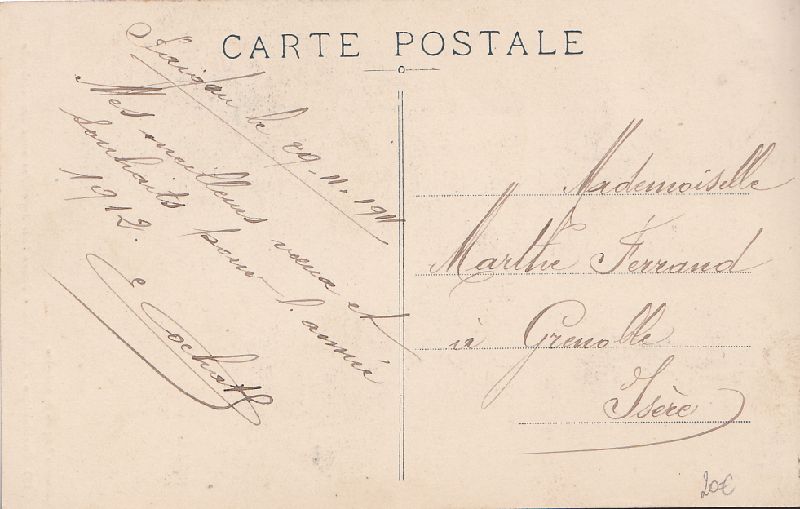 CARTE POSTALE
Saigon le 29.11.1911
Mes meilleurs voeux et
souhaits pour l'année
1912.
Mademoiselle
Marthe Ferrand
à Grenoble
Isère
20€